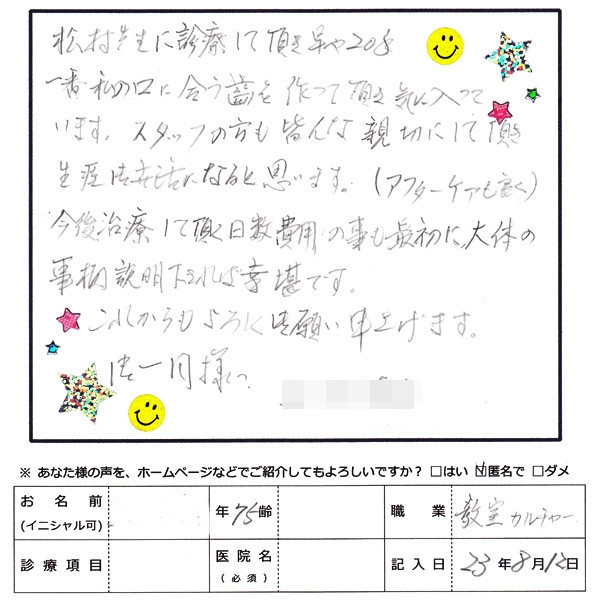 松村先生に診療して頂き早や20年
一番私の口に合う歯を作って頂き気に入って
います。スタッフの方も皆んな親切にして頂き
生涯お世話になると思います。(アフターケアも良く)
今後治療して頂く日数費用の事も最初に、大体の
事柄説明下されば幸甚です。
これからもよろしくお願い申上げます。
御一同様へ
※ あなた様の声を、ホームページなどでご紹介してもよろしいですか? □はい ☑匿名で □ダメ
お名前 (イニシャル可) 年75齢 職業 教室カルチャー
診療項目 医院名 (必須) 記入日 23年8月12日